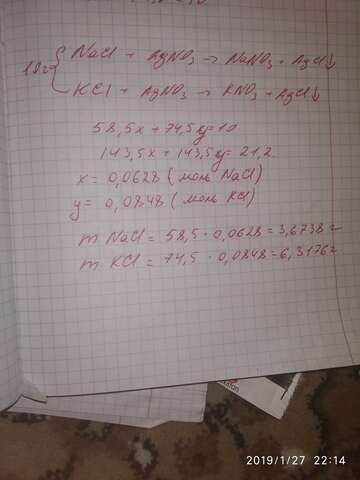 10г
NaCl + AgNO3 → NaNO3 + AgCl↓
KCl + AgNO3 → KNO3 + AgCl↓
58,5x + 74,5y = 10
143,5x + 143,5y = 21,2
x = 0,0628 (моль NaCl)
y = 0,0848 (моль KCl)
m NaCl = 58,5 · 0,0628 = 3,6738г
m KCl = 74,5 · 0,0848 = 6,3176г
2019/1/27 22:14